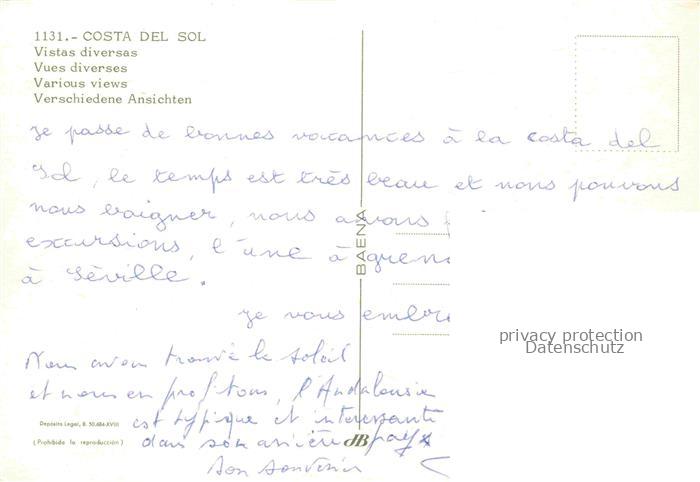 1131.- COSTA DEL SOL
Vistas diversas
Vues diverses
Various views
Verschiedene Ansichten
Je passe de bonnes vacances à la costa del
Sol, le temps est très beau et nous pouvons
nous baigner, nous avons
excursions, l'une à Gren
à Séville.
Je vous embr
BAENA
privacy protection
Datenschutz
Nous avons trouvé le soleil
et nous en profitons, l'Andalousie
Depósito Legal, B. 50.684-XVIII
est typique et interessante
(Prohibida la reproducción)
dans son arrière pays
dB
Bon souvenir